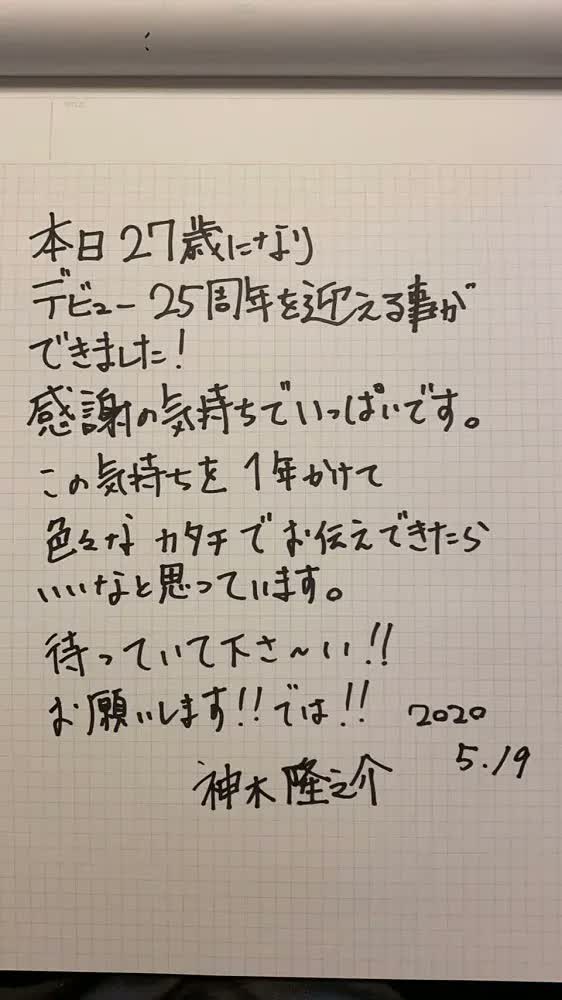 本日27歳になり
デビュー25周年を迎える事が
できました!
感謝の気持ちでいっぱいです。
この気持ちを1年かけて
色々なカタチでお伝えできたら
いいなと思っています。
待っていて下さ〜い!!
お願いします!!では!!
2020
5.19
神木隆之介